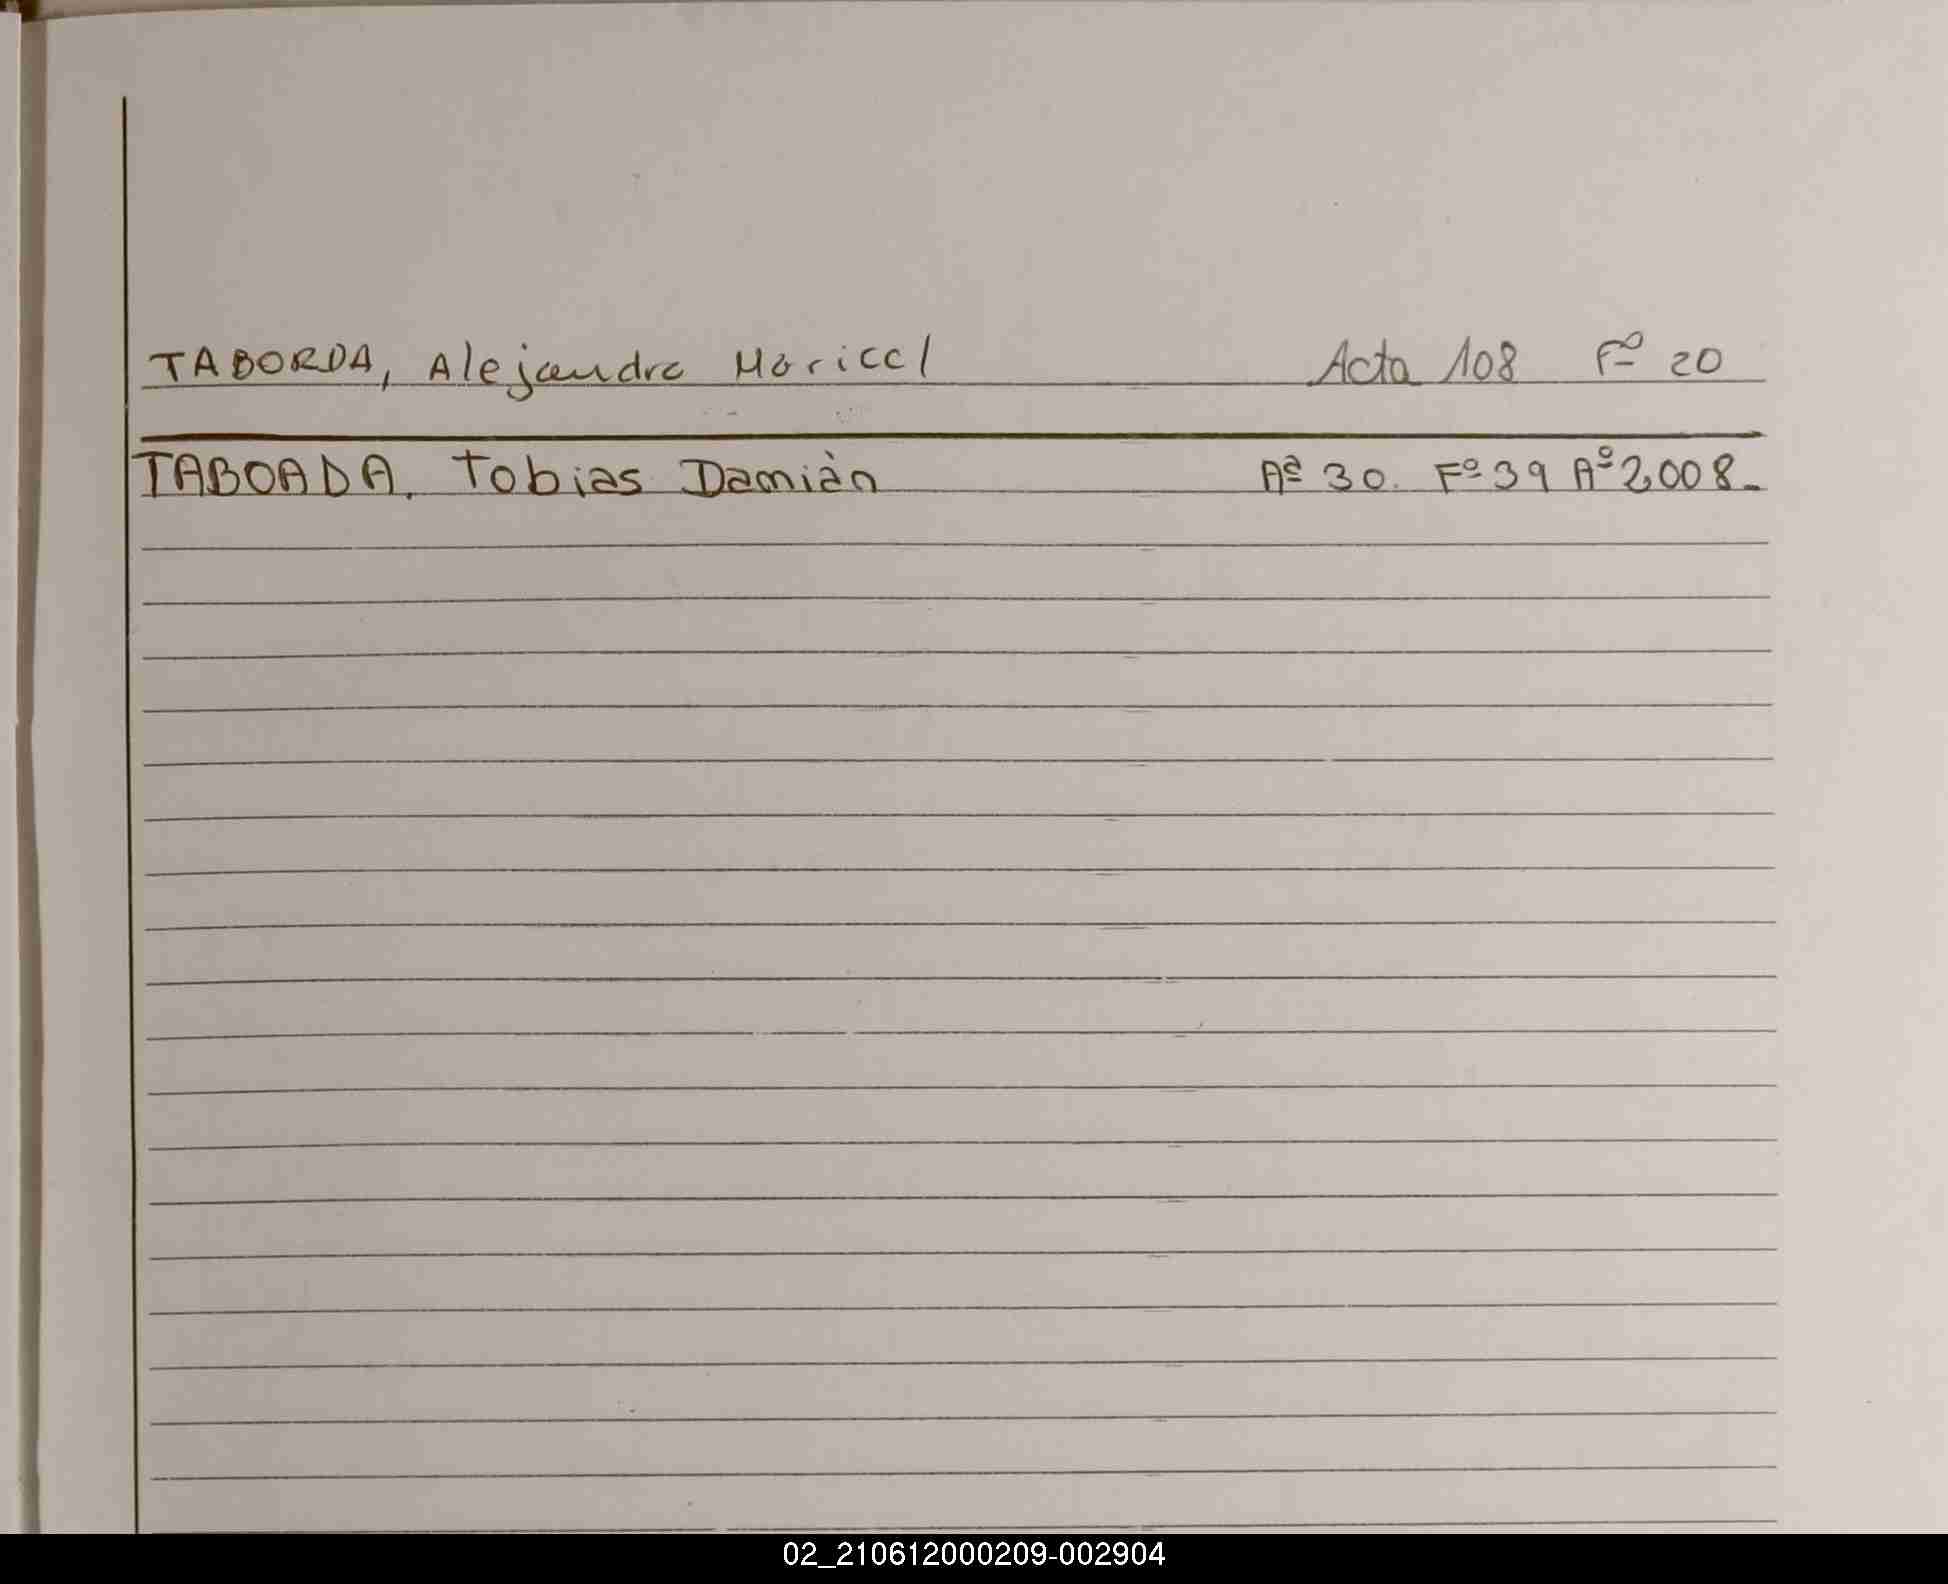 TABORDA, Alejandra Maricel Acta 108 Fº 20
TABOADA. Tobias Damiàn Aª 30. Fº 39 Aº 2,008.-
02_210612000209-002904